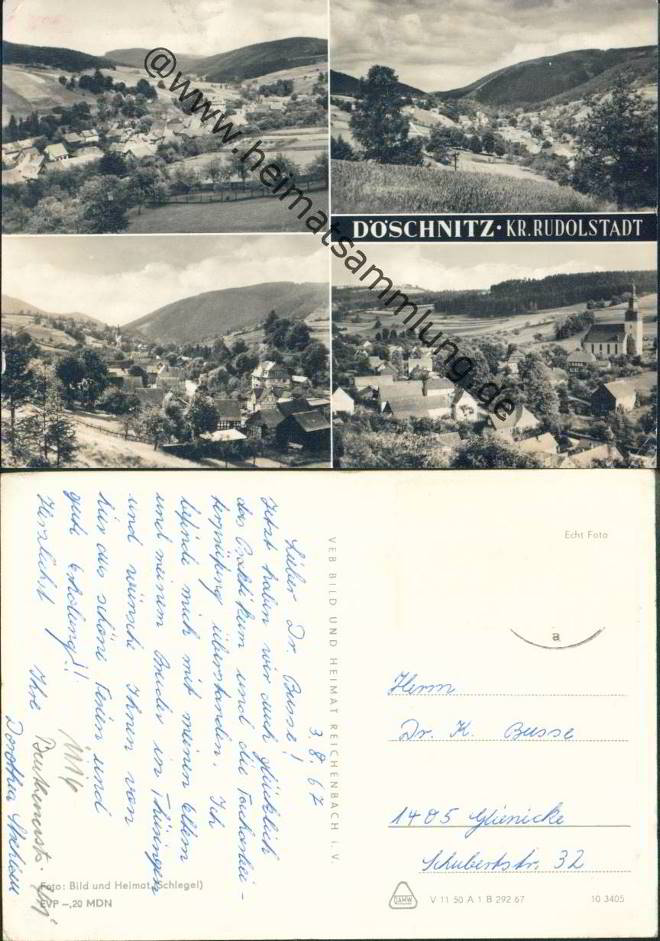 @www.heimatsammlung.de
DÖSCHNITZ · KR. RUDOLSTADT
3. 8. 67
Lieber Dr. Busse!
Jetzt haben wir auch glücklich
das Praktikum und die
überstanden. Ich
befinde mich mit meinen Eltern
und meinem Bruder in Thüringen
und wünsche Ihnen von
hier aus schöne Ferien und
gute Erholung!!
Herzlichst
Ihre
Dorothea
VEB BILD UND HEIMAT REICHENBACH i. V.
Foto: Bild und Heimat (Schlegel)
EVP –,20 MDN
Echt Foto
a
Herrn
Dr. K. Busse
1405 Glienicke
Schubertstr. 32
DAMW
V 11 50 A 1 B 292 67
10 3405